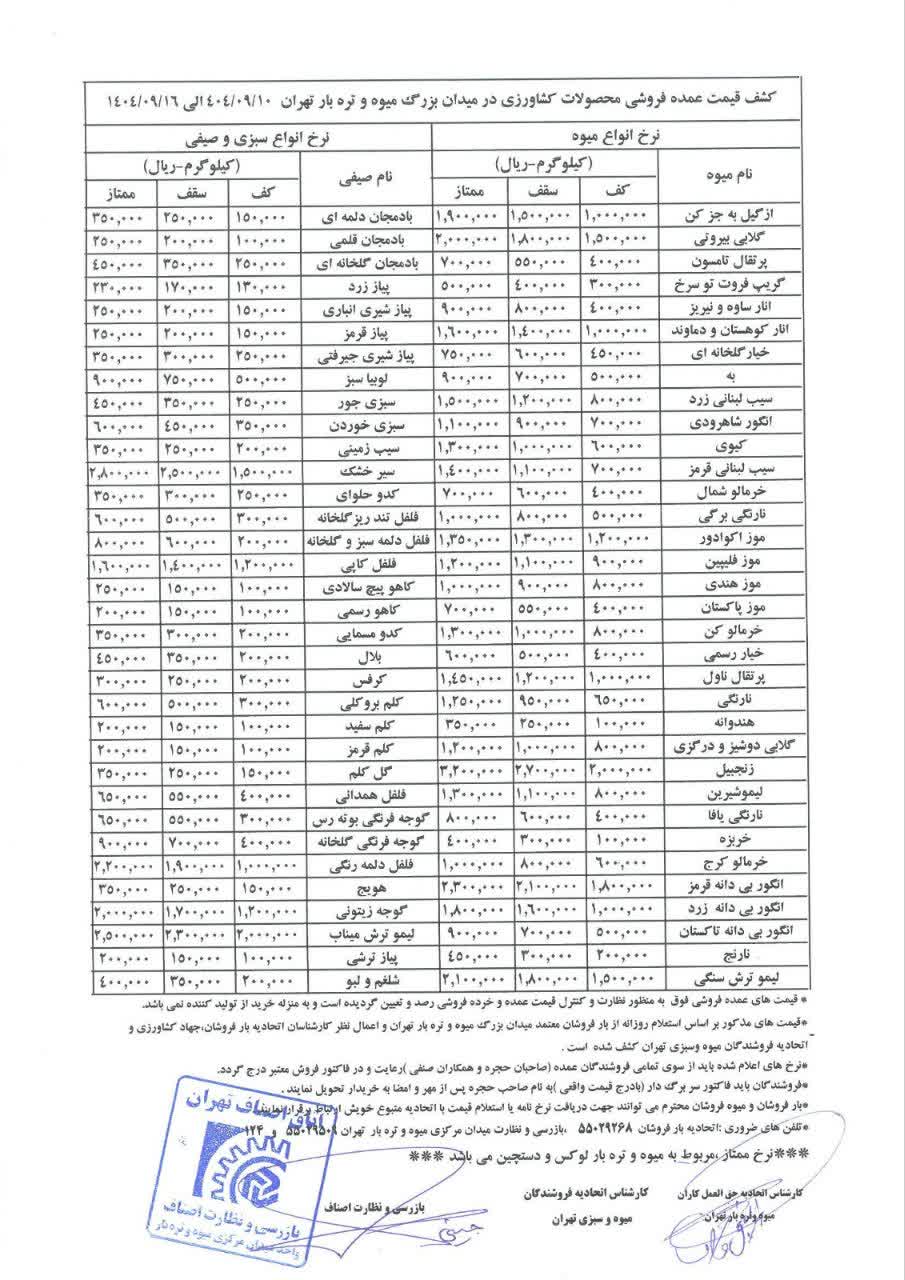 کشف قیمت عمده فروشی محصولات کشاورزی در میدان بزرگ میوه و تره بار تهران ۴۰۴/۰۹/۱۰ الی ۱۴۰۴/۰۹/۱۶
نرخ انواع میوه نرخ انواع سبزی و صیفی
نام میوه (کیلوگرم-ریال) نام صیفی (کیلوگرم-ریال)
کف سقف ممتاز کف سقف ممتاز
ازگیل به جز کن ۱,۰۰۰,۰۰۰ ۱,۵۰۰,۰۰۰ ۱,۹۰۰,۰۰۰ بادمجان دلمه ای ۱۵۰,۰۰۰ ۲۵۰,۰۰۰ ۳۵۰,۰۰۰
گلابی بیروتی ۱,۵۰۰,۰۰۰ ۱,۸۰۰,۰۰۰ ۲,۰۰۰,۰۰۰ بادمجان قلمی ۱۰۰,۰۰۰ ۲۰۰,۰۰۰ ۲۵۰,۰۰۰
پرتقال تامسون ۴۰۰,۰۰۰ ۵۵۰,۰۰۰ ۷۰۰,۰۰۰ بادمجان گلخانه ای ۲۵۰,۰۰۰ ۳۵۰,۰۰۰ ۴۵۰,۰۰۰
گریپ فروت تو سرخ ۳۰۰,۰۰۰ ۴۰۰,۰۰۰ ۵۰۰,۰۰۰ پیاز زرد ۱۳۰,۰۰۰ ۱۷۰,۰۰۰ ۲۳۰,۰۰۰
انار ساوه و نیریز ۴۰۰,۰۰۰ ۸۰۰,۰۰۰ ۹۰۰,۰۰۰ پیاز شیری انباری ۱۵۰,۰۰۰ ۲۰۰,۰۰۰ ۲۵۰,۰۰۰
انار کوهستان و دماوند ۱,۰۰۰,۰۰۰ ۱,۴۰۰,۰۰۰ ۱,۶۰۰,۰۰۰ پیاز قرمز ۱۵۰,۰۰۰ ۲۰۰,۰۰۰ ۲۵۰,۰۰۰
خیارگلخانه ای ۴۵۰,۰۰۰ ۶۰۰,۰۰۰ ۷۵۰,۰۰۰ پیاز شیری جیرفتی ۲۵۰,۰۰۰ ۳۰۰,۰۰۰ ۳۵۰,۰۰۰
به ۵۰۰,۰۰۰ ۷۰۰,۰۰۰ ۹۰۰,۰۰۰ لوبیا سبز ۵۰۰,۰۰۰ ۷۵۰,۰۰۰ ۹۰۰,۰۰۰
سیب لبنانی زرد ۸۰۰,۰۰۰ ۱,۲۰۰,۰۰۰ ۱,۵۰۰,۰۰۰ سبزی جور ۲۵۰,۰۰۰ ۳۵۰,۰۰۰ ۴۵۰,۰۰۰
انگور شاهرودی ۷۰۰,۰۰۰ ۹۰۰,۰۰۰ ۱,۱۰۰,۰۰۰ سبزی خوردن ۳۵۰,۰۰۰ ۴۵۰,۰۰۰ ۶۰۰,۰۰۰
کیوی ۶۰۰,۰۰۰ ۱,۰۰۰,۰۰۰ ۱,۳۰۰,۰۰۰ سیب زمینی ۲۰۰,۰۰۰ ۲۵۰,۰۰۰ ۳۵۰,۰۰۰
سیب لبنانی قرمز ۷۰۰,۰۰۰ ۱,۱۰۰,۰۰۰ ۱,۴۰۰,۰۰۰ سیر خشک ۱,۵۰۰,۰۰۰ ۲,۵۰۰,۰۰۰ ۲,۸۰۰,۰۰۰
خرمالو شمال ۴۰۰,۰۰۰ ۶۰۰,۰۰۰ ۷۰۰,۰۰۰ کدو حلوای ۲۵۰,۰۰۰ ۳۰۰,۰۰۰ ۳۵۰,۰۰۰
نارنگی برگی ۵۰۰,۰۰۰ ۸۰۰,۰۰۰ ۱,۰۰۰,۰۰۰ فلفل تند ریزگلخانه ۳۰۰,۰۰۰ ۵۰۰,۰۰۰ ۶۰۰,۰۰۰
موز اکوادور ۱,۲۰۰,۰۰۰ ۱,۳۰۰,۰۰۰ ۱,۳۵۰,۰۰۰ فلفل دلمه سبز و گلخانه ۲۰۰,۰۰۰ ۶۰۰,۰۰۰ ۸۰۰,۰۰۰
موز فلیپین ۹۰۰,۰۰۰ ۱,۱۰۰,۰۰۰ ۱,۲۰۰,۰۰۰ فلفل کاپی ۱,۲۰۰,۰۰۰ ۱,۴۰۰,۰۰۰ ۱,۶۰۰,۰۰۰
موز هندی ۸۰۰,۰۰۰ ۹۰۰,۰۰۰ ۱,۰۰۰,۰۰۰ کاهو پیچ سالادی ۱۰۰,۰۰۰ ۱۵۰,۰۰۰ ۲۵۰,۰۰۰
موز پاکستان ۴۰۰,۰۰۰ ۵۵۰,۰۰۰ ۷۰۰,۰۰۰ کاهو رسمی ۱۰۰,۰۰۰ ۱۵۰,۰۰۰ ۲۰۰,۰۰۰
خرمالو کن ۸۰۰,۰۰۰ ۱,۰۰۰,۰۰۰ ۱,۳۰۰,۰۰۰ کدو مسمایی ۲۰۰,۰۰۰ ۳۰۰,۰۰۰ ۳۵۰,۰۰۰
خیار رسمی ۴۰۰,۰۰۰ ۵۰۰,۰۰۰ ۶۰۰,۰۰۰ بلال ۲۰۰,۰۰۰ ۳۵۰,۰۰۰ ۴۵۰,۰۰۰
پرتقال ناول ۱,۰۰۰,۰۰۰ ۱,۲۰۰,۰۰۰ ۱,۴۵۰,۰۰۰ کرفس ۲۰۰,۰۰۰ ۲۵۰,۰۰۰ ۳۰۰,۰۰۰
نارنگی ۶۵۰,۰۰۰ ۹۵۰,۰۰۰ ۱,۲۵۰,۰۰۰ کلم بروکلی ۳۰۰,۰۰۰ ۵۰۰,۰۰۰ ۶۰۰,۰۰۰
هندوانه ۱۰۰,۰۰۰ ۲۵۰,۰۰۰ ۳۵۰,۰۰۰ کلم سفید ۱۰۰,۰۰۰ ۱۵۰,۰۰۰ ۲۰۰,۰۰۰
گلابی دوشیز و درگزی ۸۰۰,۰۰۰ ۱,۰۰۰,۰۰۰ ۱,۲۰۰,۰۰۰ کلم قرمز ۱۰۰,۰۰۰ ۱۵۰,۰۰۰ ۲۰۰,۰۰۰
زنجبیل ۲,۰۰۰,۰۰۰ ۲,۷۰۰,۰۰۰ ۳,۲۰۰,۰۰۰ گل کلم ۱۵۰,۰۰۰ ۲۵۰,۰۰۰ ۳۵۰,۰۰۰
لیموشیرین ۸۰۰,۰۰۰ ۱,۱۰۰,۰۰۰ ۱,۳۰۰,۰۰۰ فلفل همدانی ۴۰۰,۰۰۰ ۵۵۰,۰۰۰ ۶۵۰,۰۰۰
نارنگی یافا ۴۰۰,۰۰۰ ۶۰۰,۰۰۰ ۸۰۰,۰۰۰ گوجه فرنگی بوته رس ۳۰۰,۰۰۰ ۵۵۰,۰۰۰ ۶۵۰,۰۰۰
خربزه ۱۰۰,۰۰۰ ۳۰۰,۰۰۰ ۴۰۰,۰۰۰ گوجه فرنگی گلخانه ۴۰۰,۰۰۰ ۷۰۰,۰۰۰ ۹۰۰,۰۰۰
خرمالو کرج ۶۰۰,۰۰۰ ۸۰۰,۰۰۰ ۱,۰۰۰,۰۰۰ فلفل دلمه رنگی ۱,۰۰۰,۰۰۰ ۱,۹۰۰,۰۰۰ ۲,۲۰۰,۰۰۰
انگور بی دانه قرمز ۱,۸۰۰,۰۰۰ ۲,۱۰۰,۰۰۰ ۲,۳۰۰,۰۰۰ هویج ۱۵۰,۰۰۰ ۲۵۰,۰۰۰ ۳۵۰,۰۰۰
انگور بی دانه زرد ۱,۰۰۰,۰۰۰ ۱,۶۰۰,۰۰۰ ۱,۸۰۰,۰۰۰ گوجه زیتونی ۱,۲۰۰,۰۰۰ ۱,۷۰۰,۰۰۰ ۲,۰۰۰,۰۰۰
انگور بی دانه تاکستان ۵۰۰,۰۰۰ ۷۰۰,۰۰۰ ۹۰۰,۰۰۰ لیمو ترش میناب ۲,۰۰۰,۰۰۰ ۲,۳۰۰,۰۰۰ ۲,۵۰۰,۰۰۰
نارنج ۲۰۰,۰۰۰ ۳۰۰,۰۰۰ ۴۵۰,۰۰۰ پیاز ترشی ۱۰۰,۰۰۰ ۱۵۰,۰۰۰ ۲۰۰,۰۰۰
لیمو ترش سنگی ۱,۵۰۰,۰۰۰ ۱,۸۰۰,۰۰۰ ۲,۱۰۰,۰۰۰ شلغم و لبو ۲۰۰,۰۰۰ ۳۵۰,۰۰۰ ۴۰۰,۰۰۰
* قیمت های عمده فروشی فوق به منظور نظارت و کنترل قیمت عمده و خرده فروشی رصد و تعیین گردیده است و به منزله خرید از تولید کننده نمی باشد.
*قیمت های مذکور بر اساس استعلام روزانه از بار فروشان معتمد میدان بزرگ میوه و تره بار تهران و اعمال نظر کارشناسان اتحادیه بار فروشان،جهاد کشاورزی و
اتحادیه فروشندگان میوه وسبزی تهران کشف شده است .
*نرخ های اعلام شده باید از سوی تمامی فروشندگان عمده (صاحبان حجره و همکاران صنفی )رعایت و در فاکتور فروش معتبر درج گردد.
*فروشندگان باید فاکتور سر برگ دار (بادرج قیمت واقعی )به نام صاحب حجره پس از مهر و امضا به خریدار تحویل نمایند .
*بار فروشان و میوه فروشان محترم می توانند جهت دریافت نرخ نامه یا استعلام قیمت با اتحادیه متبوع خویش ارتباط برقرار نمایند
*تلفن های ضروری :اتحادیه بار فروشان ۵۵۰۲۹۲۶۸ ،بازرسی و نظارت میدان مرکزی میوه و تره بار تهران ۵۵۰۲۹۵۰۹ و ۱۲۴
***نرخ ممتاز ،مربوط به میوه و تره بار لوکس و دستچین می باشد ***
کارشناس اتحادیه حق العمل کاران کارشناس اتحادیه فروشندگان بازرسی و نظارت اصناف
میوه وتره بار تهران میوه و سبزی تهران
اتاق اصناف تهران
بازرسی و نظارت اصناف
واحد میدان مرکزی میوه و تره بار